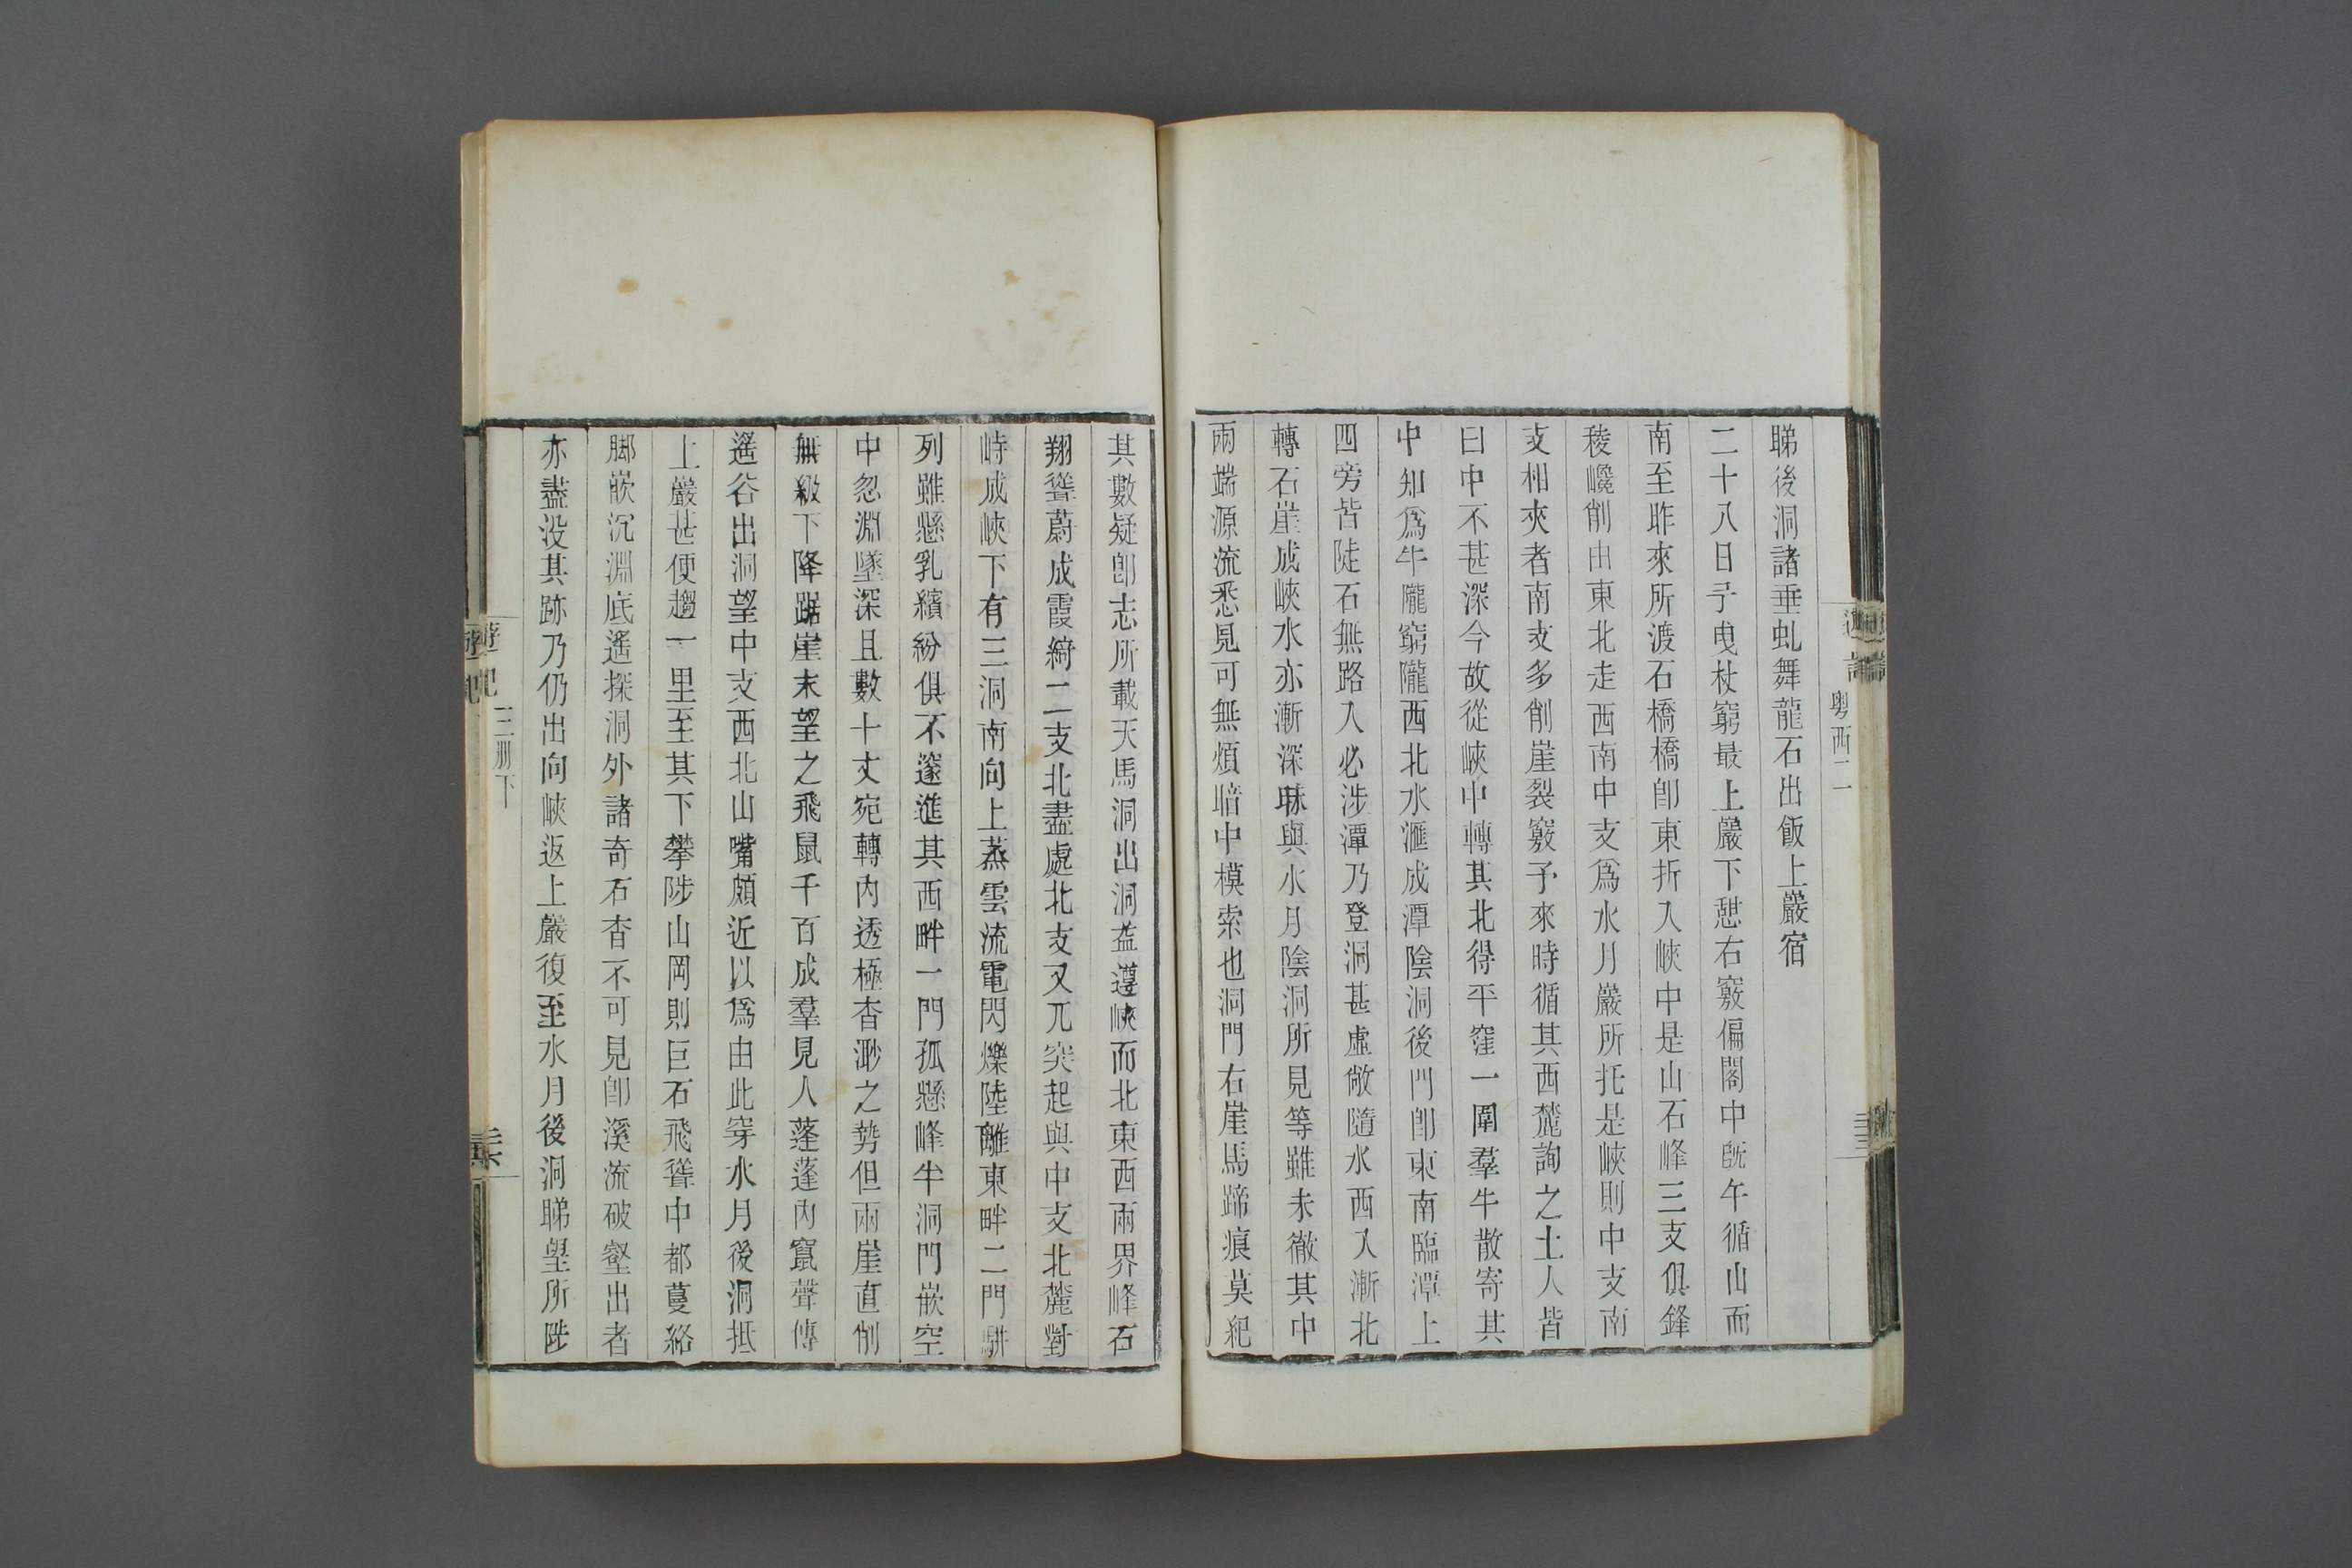 睇後洞諸垂虬舞龍石出飯上巖宿
二十八日予曳杖窮最上巖下憇右竅偏閣中旣午循山而
南至昨來所渡石橋橋卽東折入峽中是山石峰三支俱鋒
稜巉削由東北走西南中支爲水月巖所托是峽則中支南
支相夾者南支多削崖裂竅予來時循其西麓詢之土人皆
曰中不甚深今故從峽中轉其北得平窪一圍羣牛散寄其
中知爲牛隴窮隴西北水滙成潭陰洞後門卽東南臨潭上
四旁皆陡石無路入必涉潭乃登洞甚虛敞隨水西入漸北
轉石崖成峽水亦漸深昧與水月陰洞所見等雖未徹其中
兩端源流悉見可無煩暗中模索也洞門右崖馬蹄痕莫紀
其數疑卽志所載天馬洞出洞葢遵峽而北東西兩界峰石
翔聳蔚成霞綺二支北盡處北支又兀突起與中支北麓對
峙成峽下有三洞南向上蒸雲流電閃爍陸離東畔二門駢
列雖懸乳繽紛俱不邃進其西畔一門孤懸峰半洞門嵌空
中忽淵墜深且數十丈宛轉內透極杳渺之勢但兩崖直削
無級下降踞崖末望之飛鼠千百成羣見人蓬蓬內竄聲傳
遙谷出洞望中支西北山嘴頗近以爲由此穿水月後洞抵
上巖甚便趨一里至其下攀陟山岡則巨石飛聳中都蔓絡
脚嵌沉淵底遙探洞外諸奇石杳不可見卽溪流破壑出者
亦盡没其跡乃仍出向峽返上巖復至水月後洞睇望所陟
粤西二
遊記
三册下